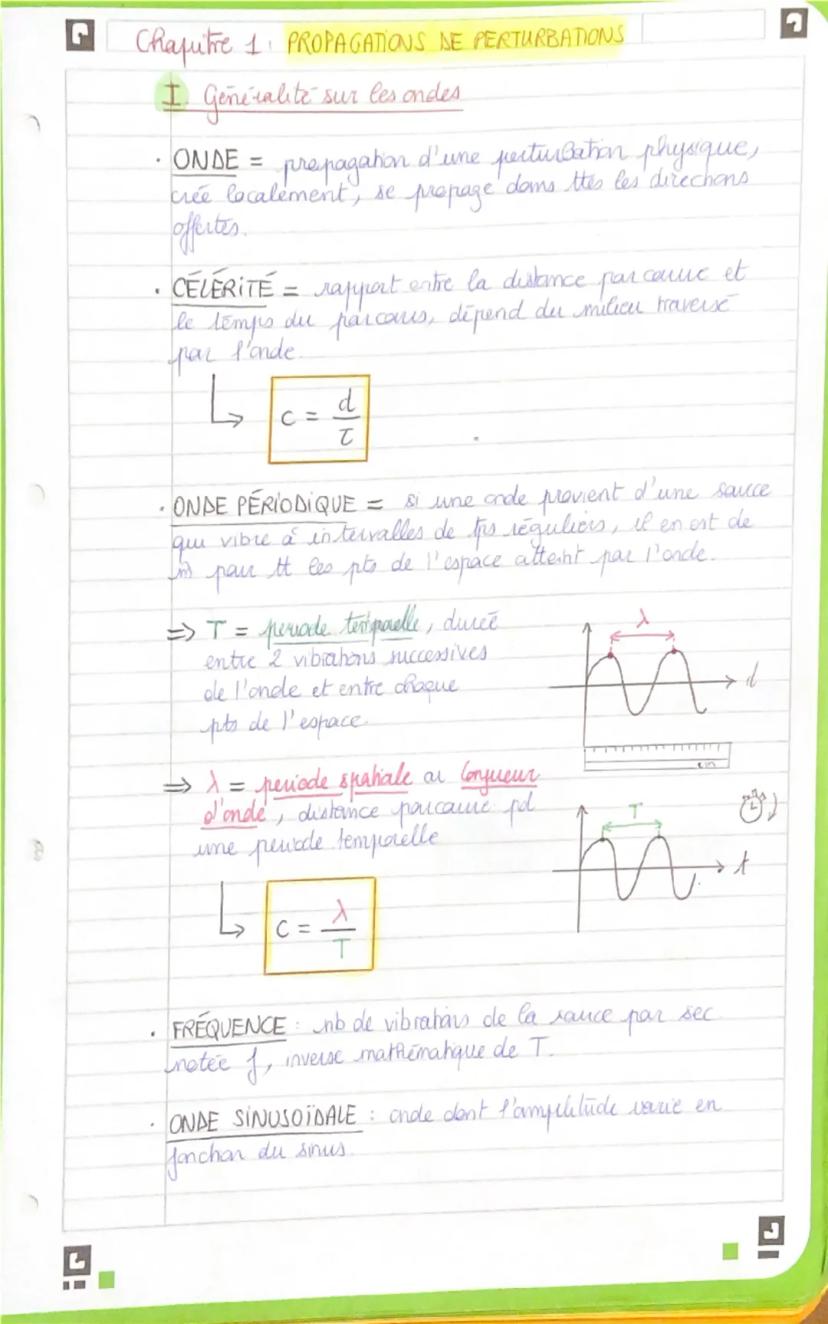 Chapitre 1: PROPAGATIONS DE PERTURBATIONS
I Généralité sur les ondes
. ONDE = propagation d'une perturbation physique,
créé localement, se propage dans ttes les directions
offertes.
. CÉLÉRITÉ = rapport entre la distance parcourue et
le temps du parcours, dépend du milieu traversé
par l'onde.
c = d/τ
. ONDE PÉRIODIQUE = si une onde provient d'une source
qui vibre à intervalles de tps réguliers, il en est de
m̂ pour tt les pts de l'espace atteint par l'onde.
⇒ T = période temporelle, durée
entre 2 vibrations successives
de l'onde et entre chaque
pts de l'espace.
λ
d
cm
⇒ λ = période spatiale ou longueur
d'onde, distance parcourue pd
une période temporelle
T
t
c = λ/T
. FRÉQUENCE : nb de vibrations de la source par sec
notée f, inverse mathématique de T.
. ONDE SINUSOÏDALE : onde dont l'amplitude varie en
fonction du sinus.